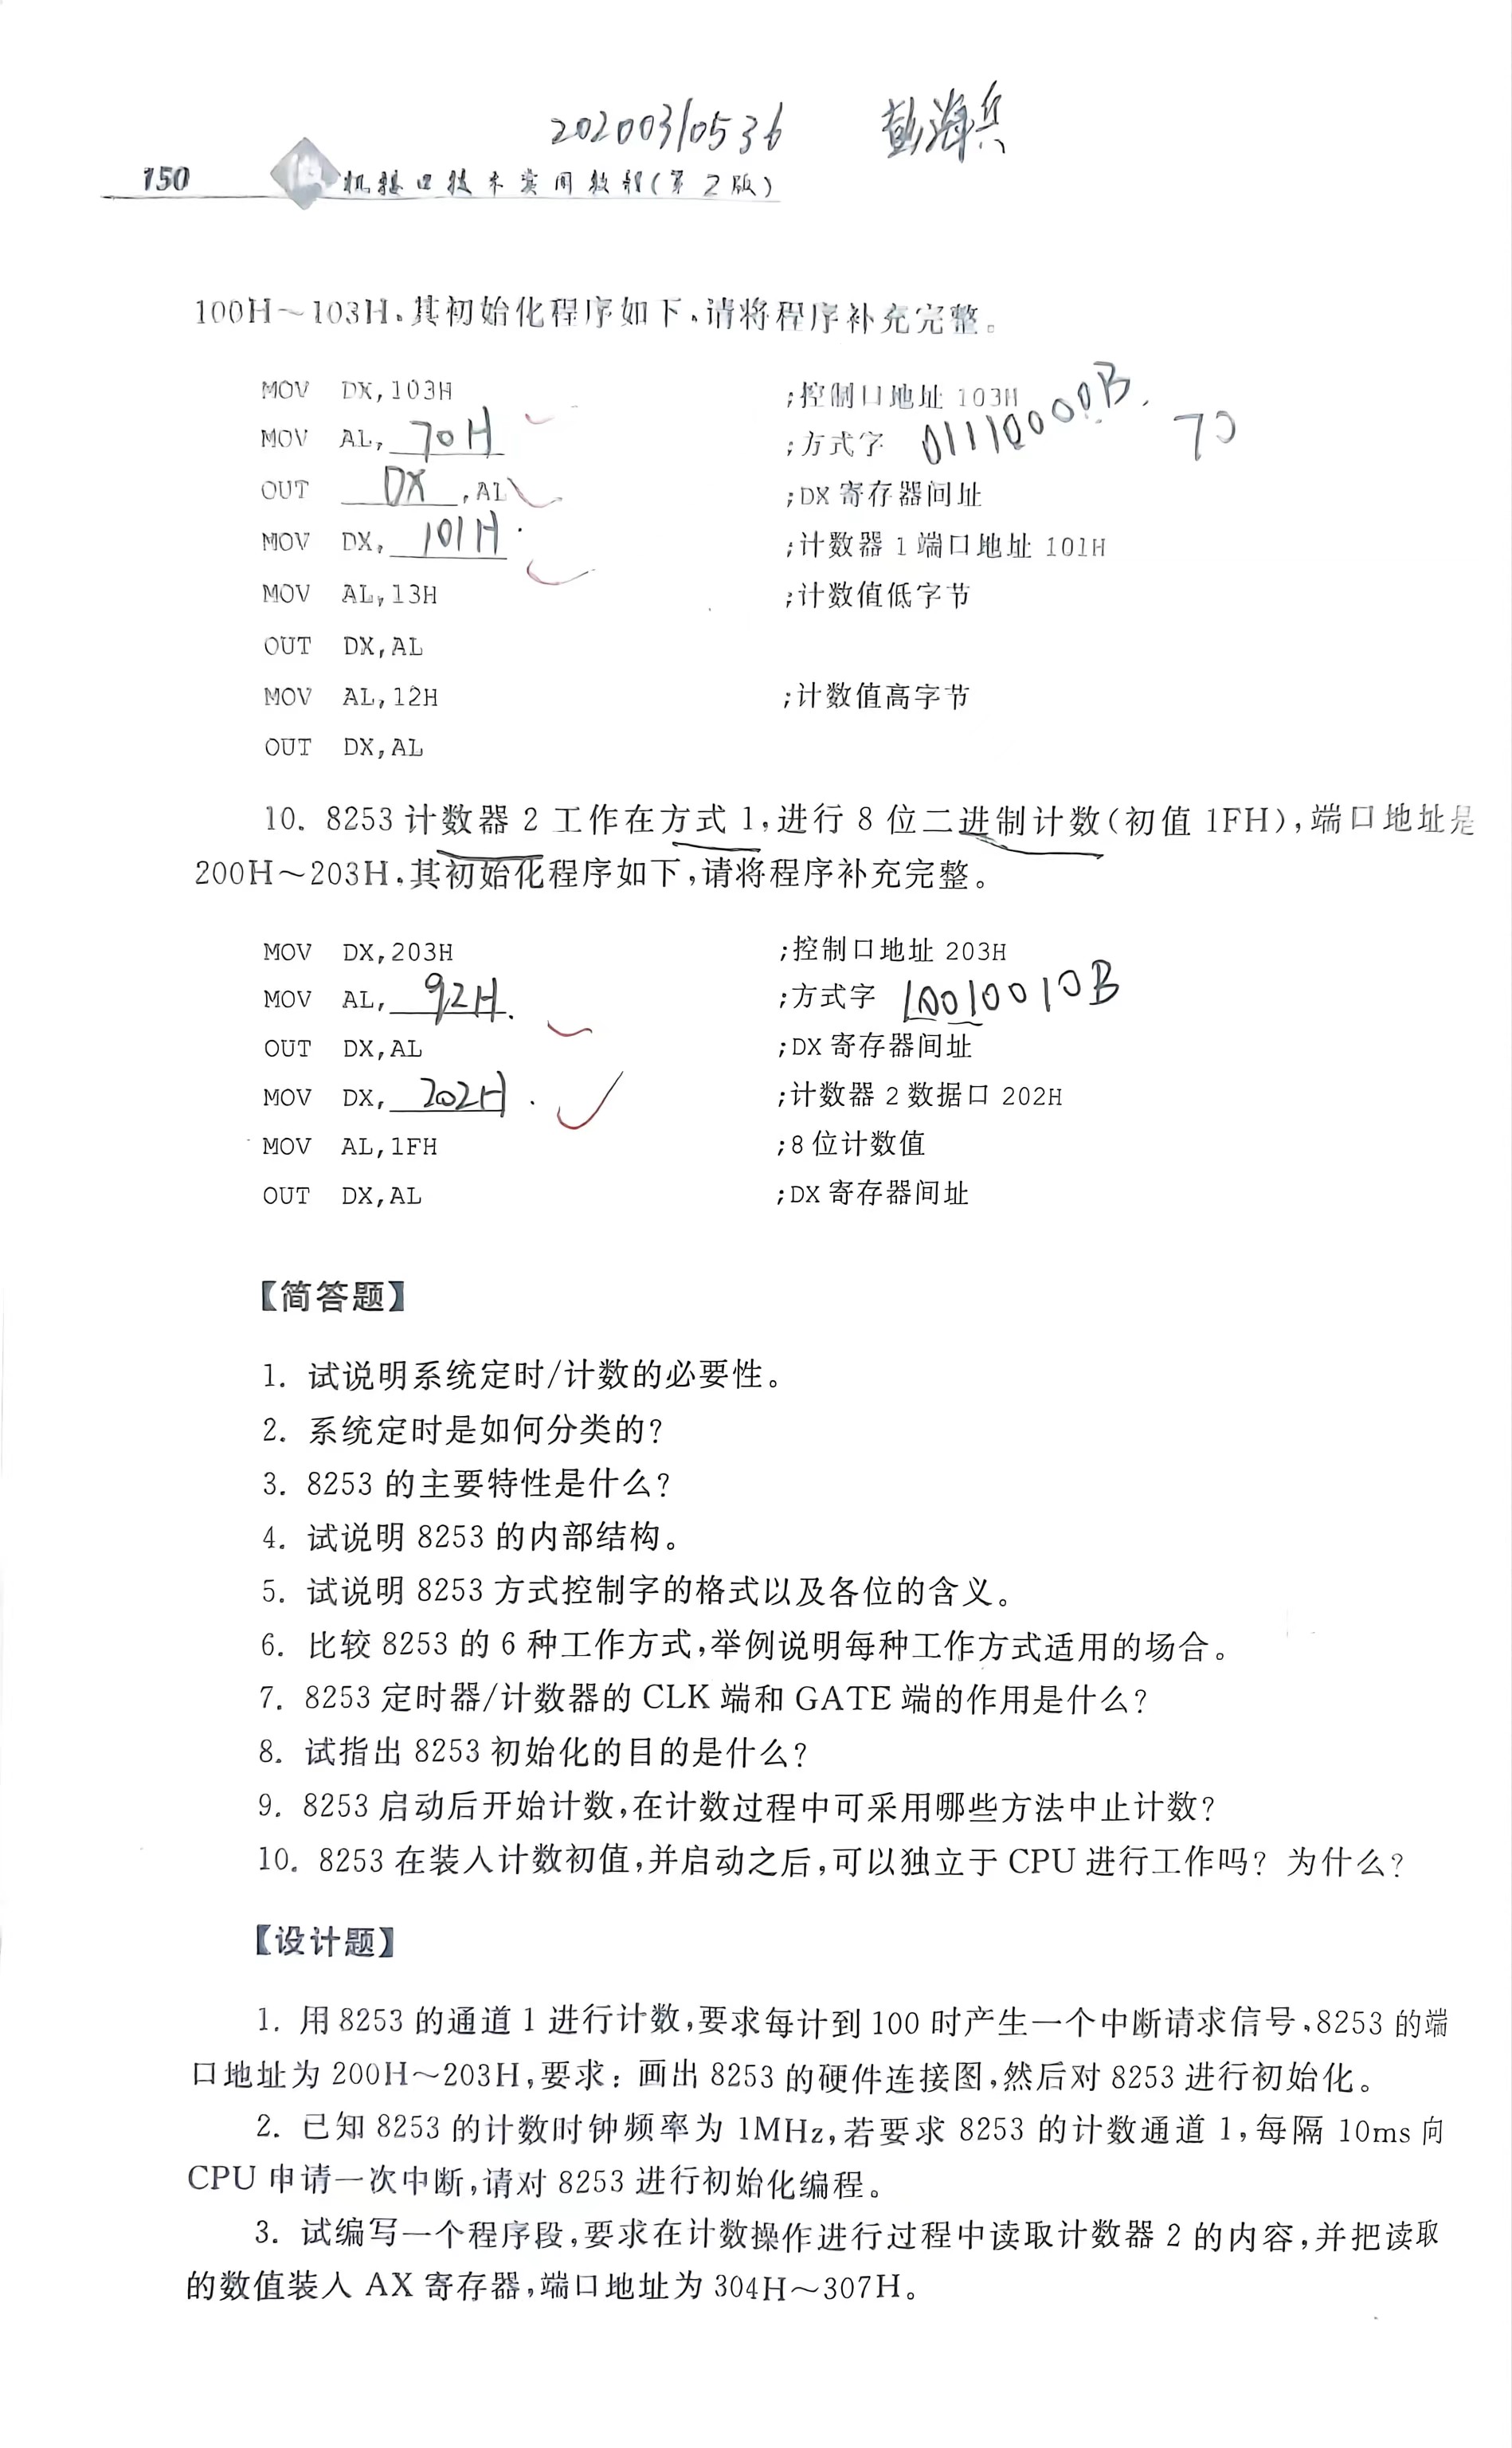 2020031/0536 彭海兵
150 微机接口技术实用教程(第2版)
100H～103H,其初始化程序如下,请将程序补充完整。
MOV DX,103H ;控制口地址 103H
MOV AL, 70H ;方式字 01110000B. 70
OUT DX ,AL ;DX 寄存器间址
MOV DX, 101H ;计数器 1 端口地址 101H
MOV AL,13H ;计数值低字节
OUT DX,AL
MOV AL,12H ;计数值高字节
OUT DX,AL
10. 8253 计数器 2 工作在方式 1,进行 8 位二进制计数(初值 1FH),端口地址是
200H～203H,其初始化程序如下,请将程序补充完整。
MOV DX,203H ;控制口地址 203H
MOV AL, 92H. ;方式字 10010010B
OUT DX,AL ;DX 寄存器间址
MOV DX, 202H. ;计数器 2 数据口 202H
MOV AL,1FH ;8 位计数值
OUT DX,AL ;DX 寄存器间址
【简答题】
1. 试说明系统定时/计数的必要性。
2. 系统定时是如何分类的?
3. 8253 的主要特性是什么?
4. 试说明 8253 的内部结构。
5. 试说明 8253 方式控制字的格式以及各位的含义。
6. 比较 8253 的 6 种工作方式,举例说明每种工作方式适用的场合。
7. 8253 定时器/计数器的 CLK 端和 GATE 端的作用是什么?
8. 试指出 8253 初始化的目的是什么?
9. 8253 启动后开始计数,在计数过程中可采用哪些方法中止计数?
10. 8253 在装入计数初值,并启动之后,可以独立于 CPU 进行工作吗? 为什么?
【设计题】
1. 用 8253 的通道 1 进行计数,要求每计到 100 时产生一个中断请求信号,8253 的端
口地址为 200H～203H,要求: 画出 8253 的硬件连接图,然后对 8253 进行初始化。
2. 已知 8253 的计数时钟频率为 1MHz,若要求 8253 的计数通道 1,每隔 10ms 向
CPU 申请一次中断,请对 8253 进行初始化编程。
3. 试编写一个程序段,要求在计数操作进行过程中读取计数器 2 的内容,并把读取
的数值装入 AX 寄存器,端口地址为 304H～307H。